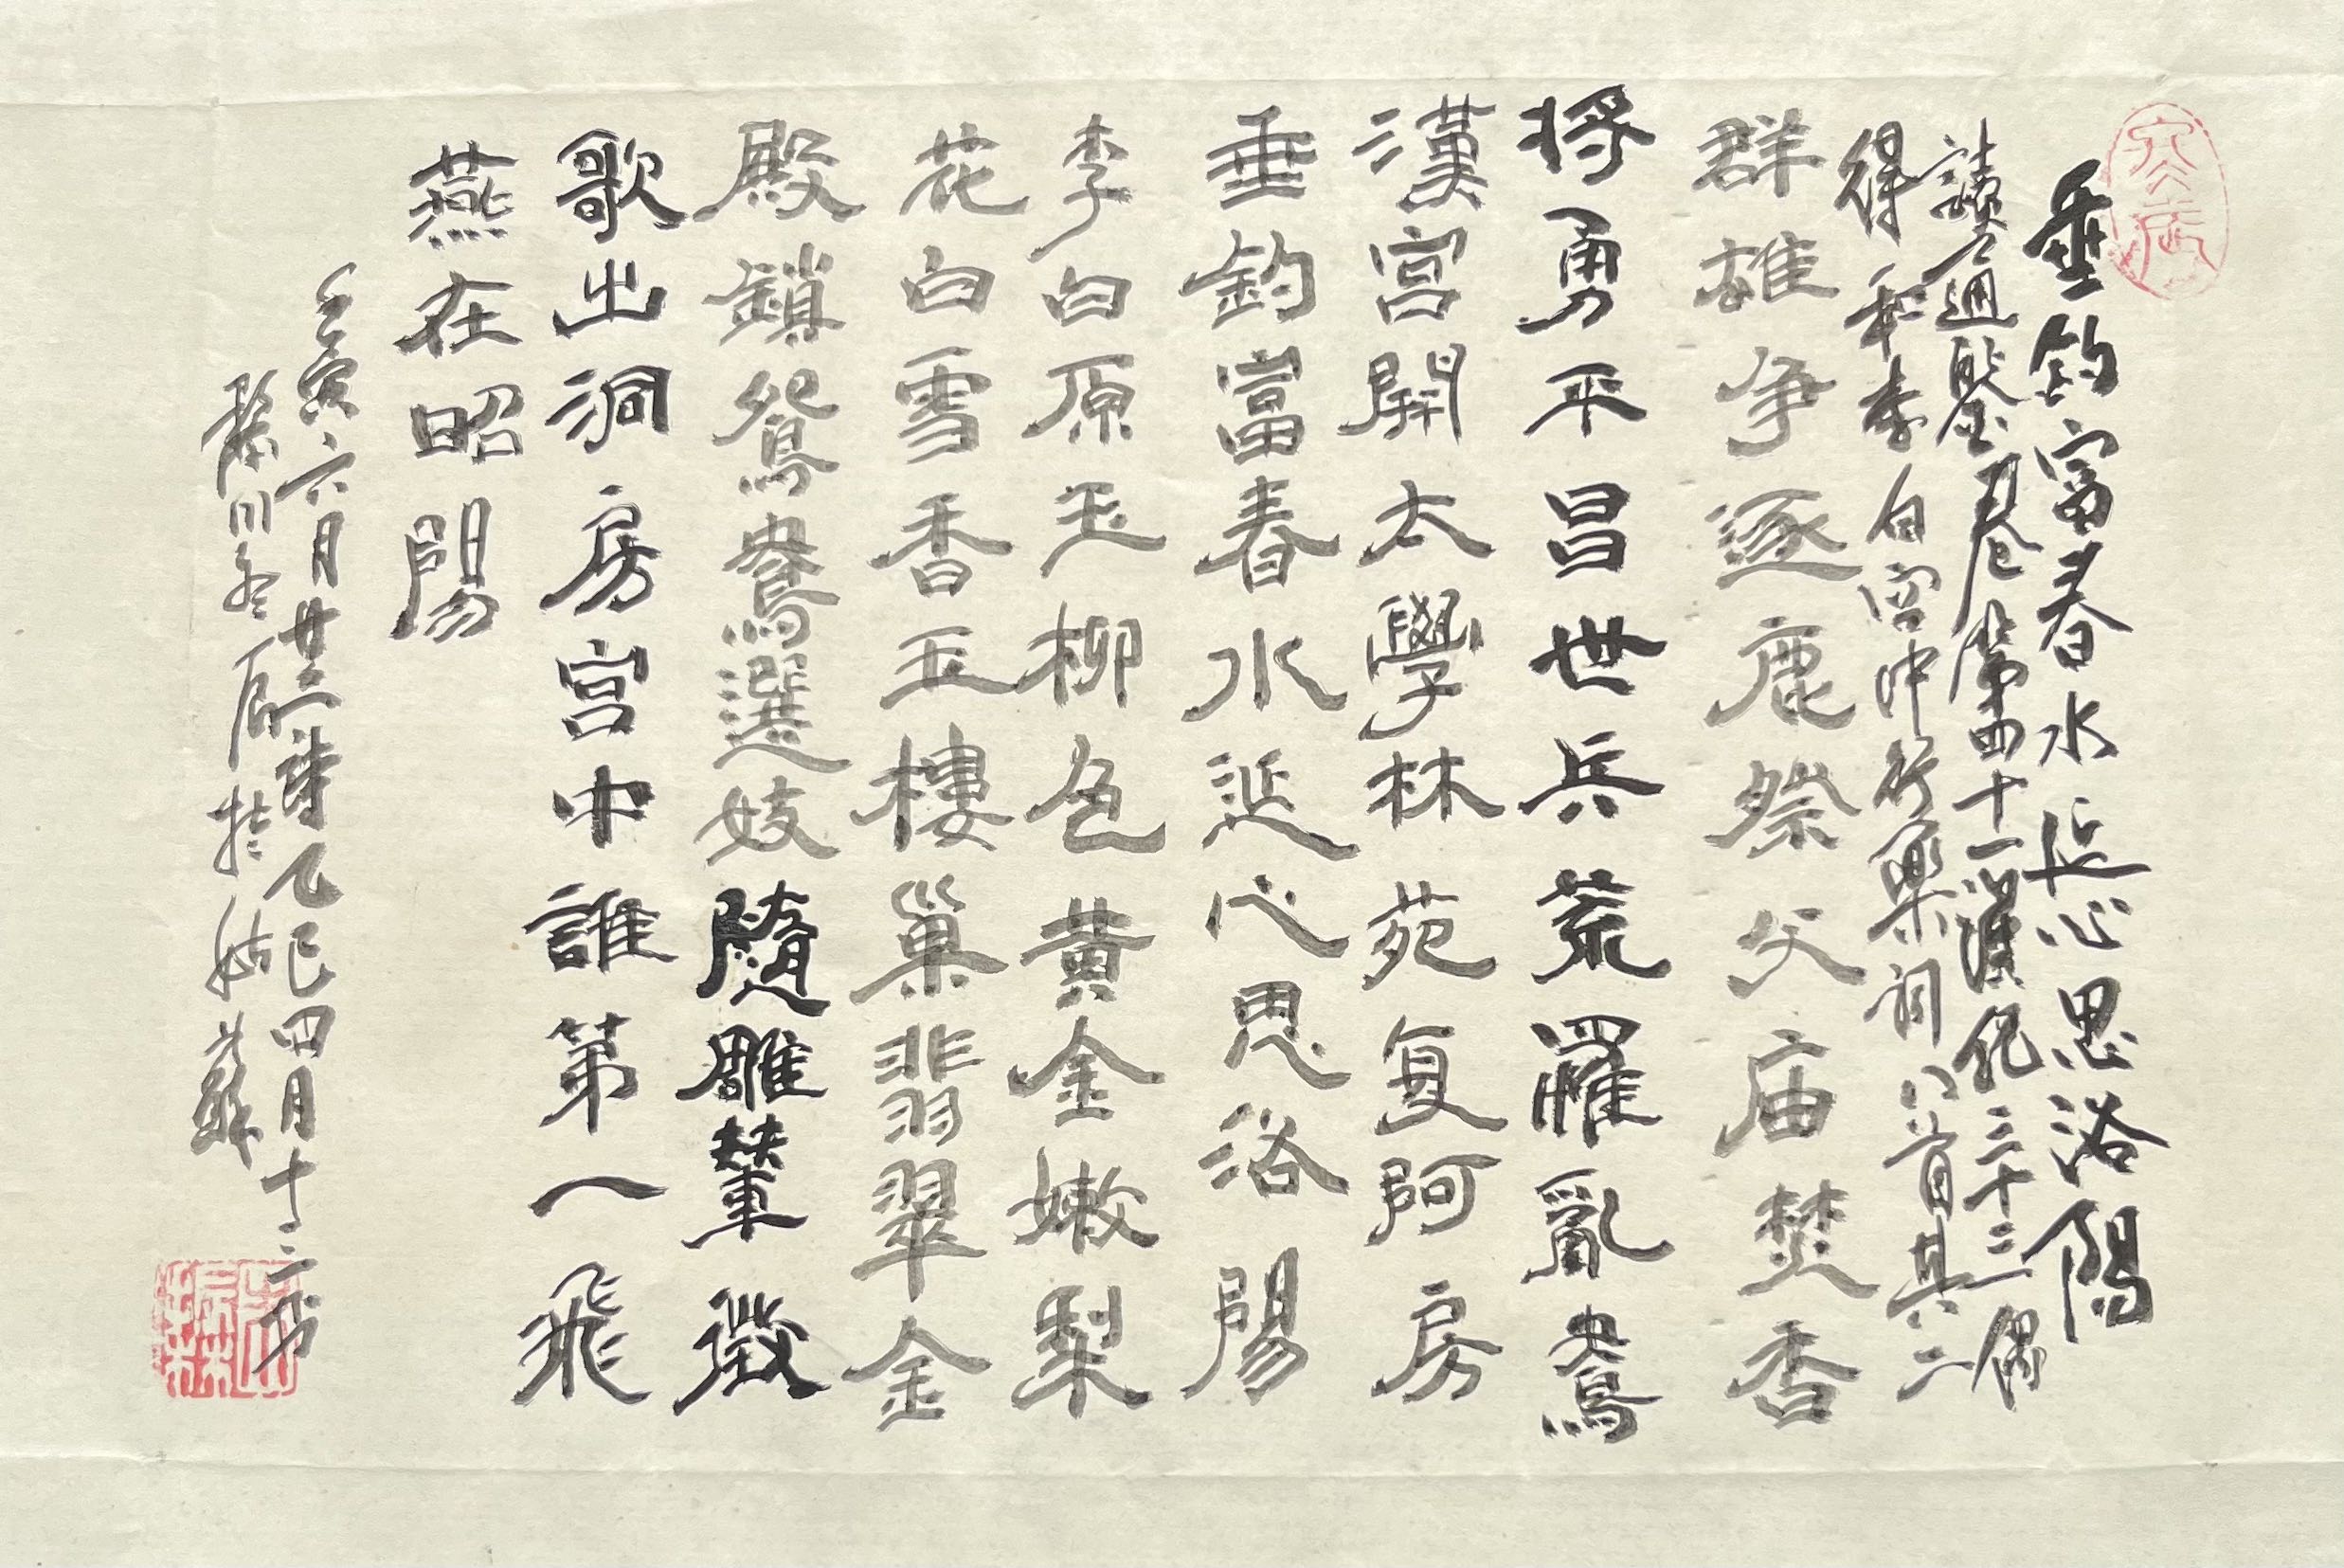 垂釣富春水延心思洛陽
讀通鑒卷第四十一漢紀三十三偶
得和李白宮中行樂詞八首其二
群雄爭逐鹿祭父庙焚香
将勇平昌世兵荒罹亂鴦
漢宮開太學林苑复阿房
垂釣富春水延心思洛陽
李白原玉柳色黄金嫩梨
花白雪香玉樓巢翡翠金
殿鎖鴛鴦選妓隨雕輦徵
歌出洞房宮中誰第一飛
燕在昭陽
壬寅六月廿二詩乙巳四月十二书
黎川 居 於姑蘇